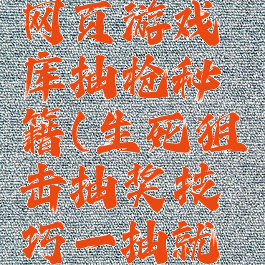 网页游戏
库抽枪秘
籍(生死狙
击抽奖技
巧一抽就